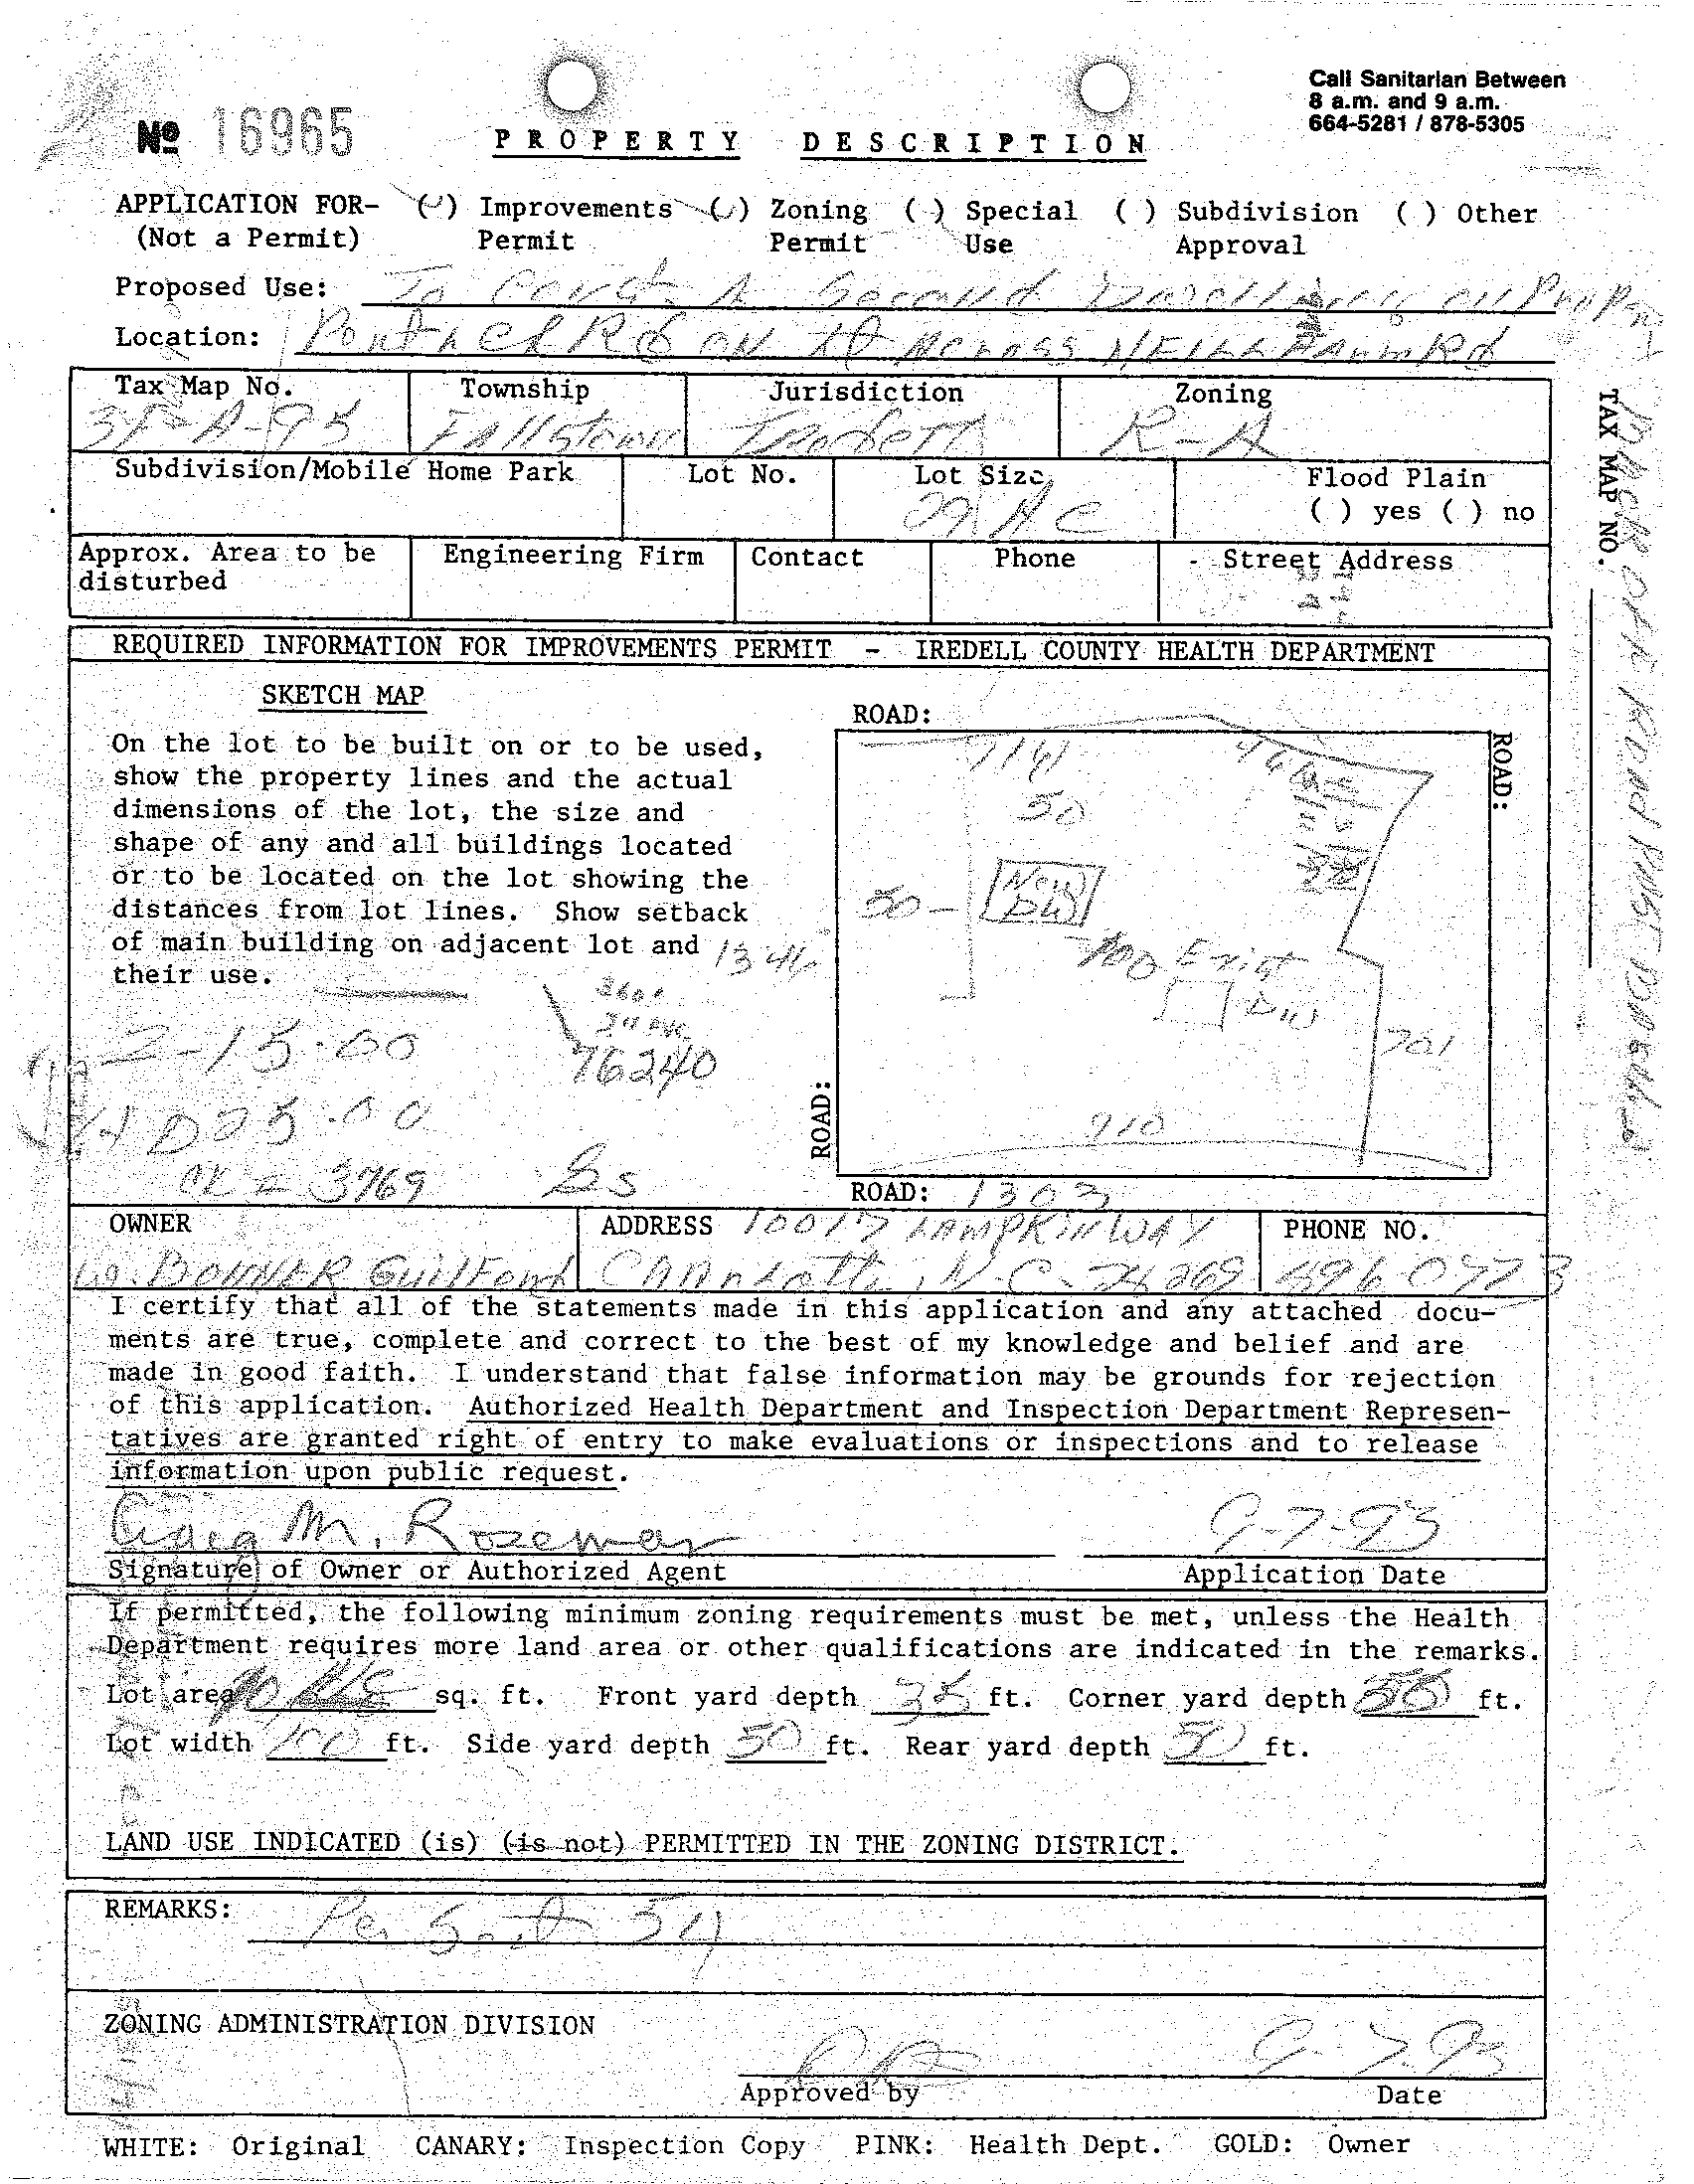 Call Sanitarian Between
8 a.m. and 9 a.m.
664-5281 / 878-5305
Nº 16965
PROPERTY DESCRIPTION
APPLICATION FOR- (✓) Improvements (✓) Zoning ( ) Special ( ) Subdivision ( ) Other
(Not a Permit) Permit Permit Use Approval
Proposed Use: To Const A Second Dwelling on Property
Location: Rd on Across NEILL FARM Rd
Tax Map No. Township Jurisdiction Zoning
Fallstown Iredell R-A
Subdivision/Mobile Home Park Lot No. Lot Size Flood Plain
29 AC ( ) yes ( ) no
Approx. Area to be Engineering Firm Contact Phone Street Address
disturbed
TAX MAP NO.
REQUIRED INFORMATION FOR IMPROVEMENTS PERMIT - IREDELL COUNTY HEALTH DEPARTMENT
SKETCH MAP
ROAD:
On the lot to be built on or to be used,
show the property lines and the actual
dimensions of the lot, the size and
shape of any and all buildings located
or to be located on the lot showing the
distances from lot lines. Show setback
of main building on adjacent lot and
their use.
1346
714
50
ROAD:
50 - New DW
100 Exist
DW
701
910
2-15.00
76240
D25.00
CK # 3769
ROAD:
ROAD: 1303
OWNER ADDRESS 10017 LAMPKIN WAY PHONE NO.
BONNER Guilford Charlotte, N.C. 28269 596-0973
I certify that all of the statements made in this application and any attached docu-
ments are true, complete and correct to the best of my knowledge and belief and are
made in good faith. I understand that false information may be grounds for rejection
of this application. Authorized Health Department and Inspection Department Represen-
tatives are granted right of entry to make evaluations or inspections and to release
information upon public request.
M. Rozeman 9-7-93
Signature of Owner or Authorized Agent Application Date
If permitted, the following minimum zoning requirements must be met, unless the Health
Department requires more land area or other qualifications are indicated in the remarks.
Lot area sq. ft. Front yard depth 35 ft. Corner yard depth 50 ft.
Lot width 100 ft. Side yard depth 50 ft. Rear yard depth 50 ft.
LAND USE INDICATED (is) (is not) PERMITTED IN THE ZONING DISTRICT.
REMARKS: Per Sect 54
ZONING ADMINISTRATION DIVISION
9-7-93
Approved by Date
WHITE: Original CANARY: Inspection Copy PINK: Health Dept. GOLD: Owner